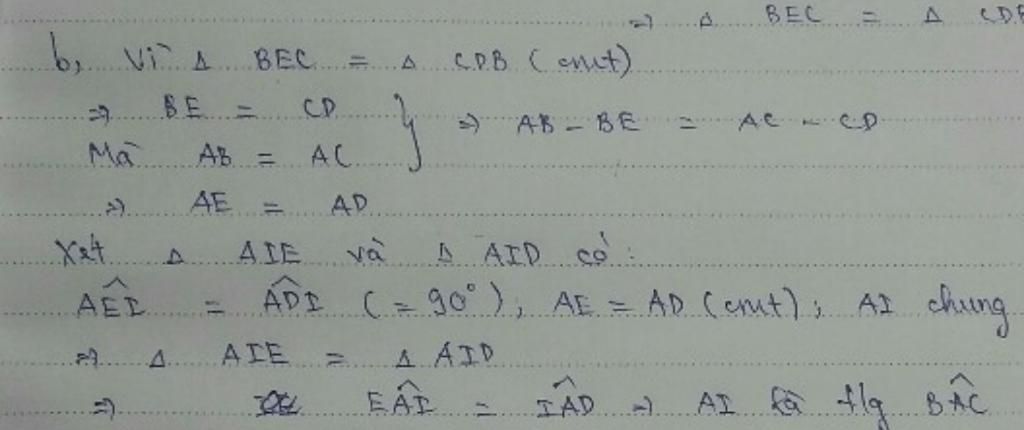 => Δ BEC = Δ CDB
b, Vì Δ BEC = Δ CDB (cmt)
=> BE = CD } => AB - BE = AC - CD
Mà AB = AC
=> AE = AD
Xét Δ AIE và Δ AID có:
AÊI = AD̂I (= 90°), AE = AD (cmt); AI chung
=> Δ AIE = Δ AID
=> EÂI = IÂD => AI là f/g BÂC